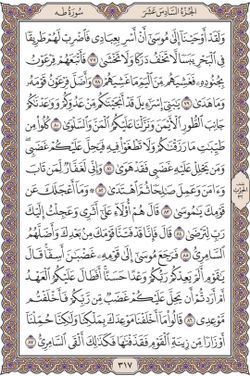 الجزء السادس عشر
سورة طه
وَلَقَدْ أَوْحَيْنَا إِلَىٰ مُوسَىٰ أَنْ أَسْرِ بِعِبَادِي فَاضْرِبْ لَهُمْ طَرِيقًا
فِي الْبَحْرِ يَبَسًا لَا تَخَافُ دَرَكًا وَلَا تَخْشَىٰ ٧٧ فَأَتْبَعَهُمْ فِرْعَوْنُ
بِجُنُودِهِ فَغَشِيَهُمْ مِنَ الْيَمِّ مَا غَشِيَهُمْ ٧٨ وَأَضَلَّ فِرْعَوْنُ قَوْمَهُ
وَمَا هَدَىٰ ٧٩ يَا بَنِي إِسْرَائِيلَ قَدْ أَنْجَيْنَاكُمْ مِنْ عَدُوِّكُمْ وَوَاعَدْنَاكُمْ
جَانِبَ الطُّورِ الْأَيْمَنَ وَنَزَّلْنَا عَلَيْكُمُ الْمَنَّ وَالسَّلْوَىٰ ٨٠ كُلُوا مِنْ
طَيِّبَاتِ مَا رَزَقْنَاكُمْ وَلَا تَطْغَوْا فِيهِ فَيَحِلَّ عَلَيْكُمْ غَضَبِي
وَمَنْ يَحْلِلْ عَلَيْهِ غَضَبِي فَقَدْ هَوَىٰ ٨١ وَإِنِّي لَغَفَّارٌ لِمَنْ تَابَ
وَآمَنَ وَعَمِلَ صَالِحًا ثُمَّ اهْتَدَىٰ ٨٢ وَمَا أَعْجَلَكَ عَنْ
قَوْمِكَ يَا مُوسَىٰ ٨٣ قَالَ هُمْ أُولَاءِ عَلَىٰ أَثَرِي وَعَجِلْتُ إِلَيْكَ
رَبِّ لِتَرْضَىٰ ٨٤ قَالَ فَإِنَّا قَدْ فَتَنَّا قَوْمَكَ مِنْ بَعْدِكَ وَأَضَلَّهُمُ
السَّامِرِيُّ ٨٥ فَرَجَعَ مُوسَىٰ إِلَىٰ قَوْمِهِ غَضْبَانَ أَسِفًا قَالَ
يَا قَوْمِ أَلَمْ يَعِدْكُمْ رَبُّكُمْ وَعْدًا حَسَنًا أَفَطَالَ عَلَيْكُمُ الْعَهْدُ
أَمْ أَرَدْتُمْ أَنْ يَحِلَّ عَلَيْكُمْ غَضَبٌ مِنْ رَبِّكُمْ فَأَخْلَفْتُمْ
مَوْعِدِي ٨٦ قَالُوا مَا أَخْلَفْنَا مَوْعِدَكَ بِمَلْكِنَا وَلَٰكِنَّا حُمِّلْنَا
أَوْزَارًا مِنْ زِينَةِ الْقَوْمِ فَقَذَفْنَاهَا فَكَذَٰلِكَ أَلْقَى السَّامِرِيُّ ٨٧
٣١٧